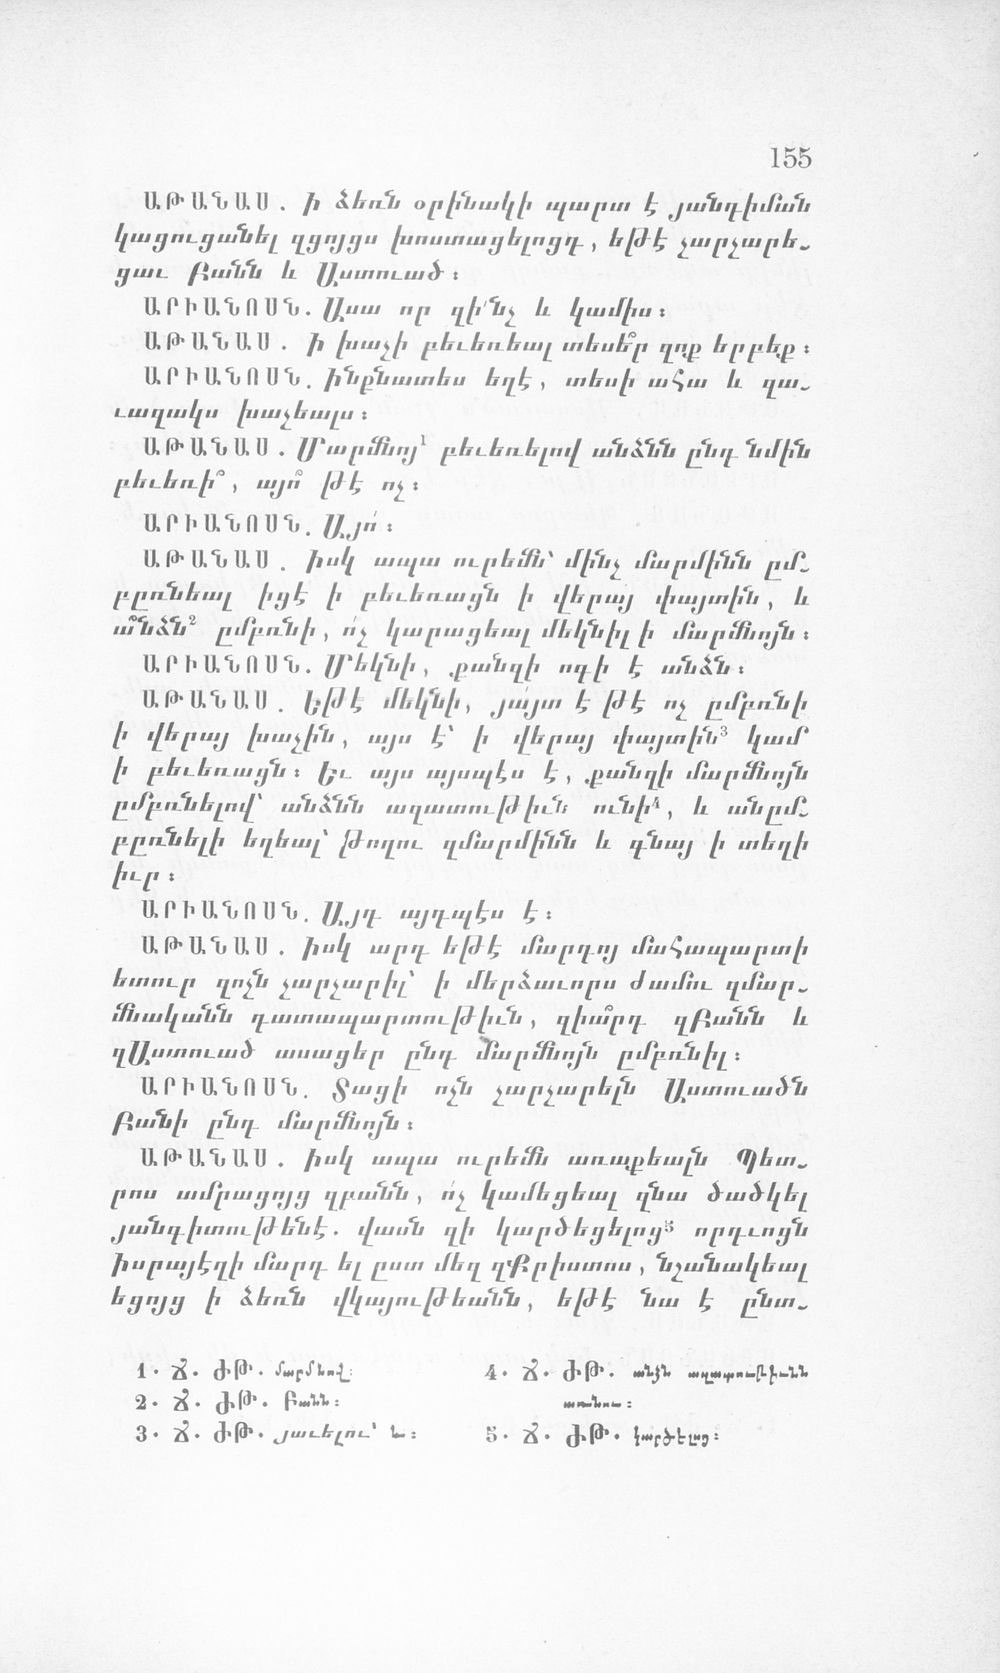 155
ԱԹԱՆԱՍ. Ի ձեռն օրինակի պարտ է յանդիման
կացուցանել զցոյցս խոստացելոցդ, եթէ չարչարե-
ցաւ Բանն և Աստուած։
ԱՐԻԱՆՈՍՆ. Ասա որ զի՛նչ և կամիս։
ԱԹԱՆԱՍ. Ի խաչի բեւեռեալ տեսե՞ր զոք երբեք։
ԱՐԻԱՆՈՍՆ. Ինքնատես եղէ, տեսի ահա և զա-
ւազակս խաչեալս։
ԱԹԱՆԱՍ. Մարմնոյ¹ բեւեռելով անձնն ընդ նմին
բեւեռի՞, այո՞ թէ ոչ։
ԱՐԻԱՆՈՍՆ. Այո՛։
ԱԹԱՆԱՍ. Իսկ ապա ուրեմն՝ մինչ մարմինն ըմ-
բըռնեալ իցէ ի բեւեռացն ի վերայ փայտին, և
ա՞նձն² ըմբռնի, ո՛չ կարացեալ մեկնիլ ի մարմնոյն։
ԱՐԻԱՆՈՍՆ. Մեկնի, քանզի ոգի է անձն։
ԱԹԱՆԱՍ. Եթէ մեկնի, յայտ է թէ ոչ ըմբռնի
ի վերայ խաչին, այս է՝ ի վերայ փայտին³ կամ
ի բեւեռացն։ Եւ այս այսպէս է, քանզի մարմնոյն
ըմբռնելով՝ անձնն ազատութիւն ունի⁴, և անըմ-
բըռնելի եղեալ՝ թողու զմարմինն և գնայ ի տեղի
իւր։
ԱՐԻԱՆՈՍՆ. Այդ այդպէս է։
ԱԹԱՆԱՍ. Իսկ արդ եթէ մարդոյ մահապարտի
ետուր զոչն չարչարիլ՝ ի մերձաւորս ժամու զմար-
մնականն դատապարտութիւն, զիա՞րդ զԲանն և
զԱստուած ասացեր ընդ մարմնոյն ըմբռնիլ։
ԱՐԻԱՆՈՍՆ. Տացի ոչն չարչարելն Աստուածն
Բանի ընդ մարմնոյն։
ԱԹԱՆԱՍ. Իսկ ապա ուրեմն առաքեալն Պետ-
րոս ամրացոյց զբանն, ո՛չ կամեցեալ զնա ծածկել
յանգիտութենէ. վասն զի կարծեցելոց⁵ որդւոցն
Իսրայէղի մարդ ել ըստ մեզ զՔրիստոս, նշանակեալ
եցոյց ի ձեռն վկայութեանն, եթէ նա է ընտ-
1. Ճ. ԺԹ. մարմնով։
2. Ճ. ԺԹ. Բանն։
3. Ճ. ԺԹ. յաւելու՝ Նա։
4. Ճ. ԺԹ. անձն ազատութիւնն
առնու։
5. Ճ. ԺԹ. կարծելոց։